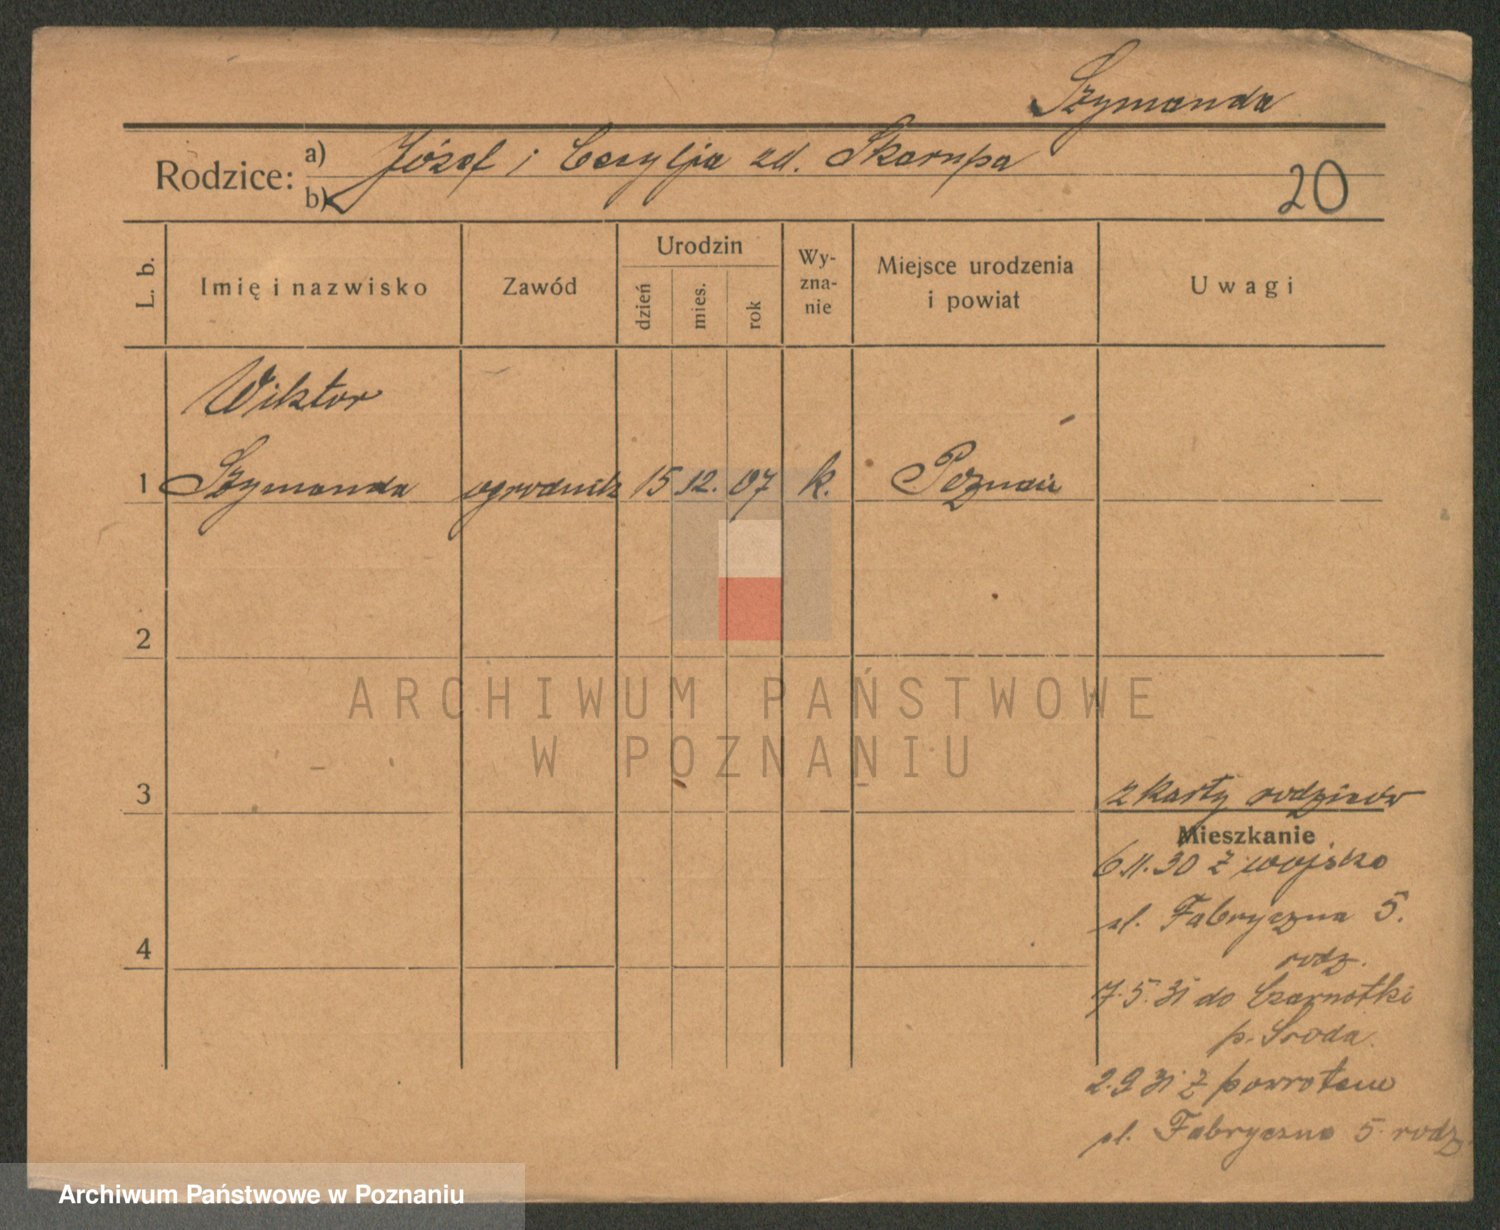 Szymanda
Rodzice: a) Józef i Cecylja zd. Skarupa
b)
20
L. b.
Imię i nazwisko
Zawód
Urodzin
dzień
mies.
rok
Wy-
zna-
nie
Miejsce urodzenia
i powiat
Uwagi
Wiktor
1 Szymanda ogrodnik 15 12. 07 k. Poznań
2
3
4
z karty rodziców
Mieszkanie
6.11.30 z wojska
ul. Fabryczna 5.
rodz.
7.5.31 do Czarnotki
p. Środa.
2.9.31 z powrotem
ul. Fabryczna 5 rodz.
ARCHIWUM PAŃSTWOWE
W POZNANIU
Archiwum Państwowe w Poznaniu